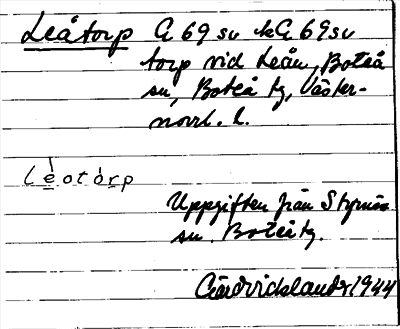 Leåtorp G 69 sv kG 69 sv
torp vid Leån, Boteå
sn, Boteå tg, Väster-
norrl. l.
lèotórp
Uppgiften från Styrnäs
sn. Boteå tg.
1944